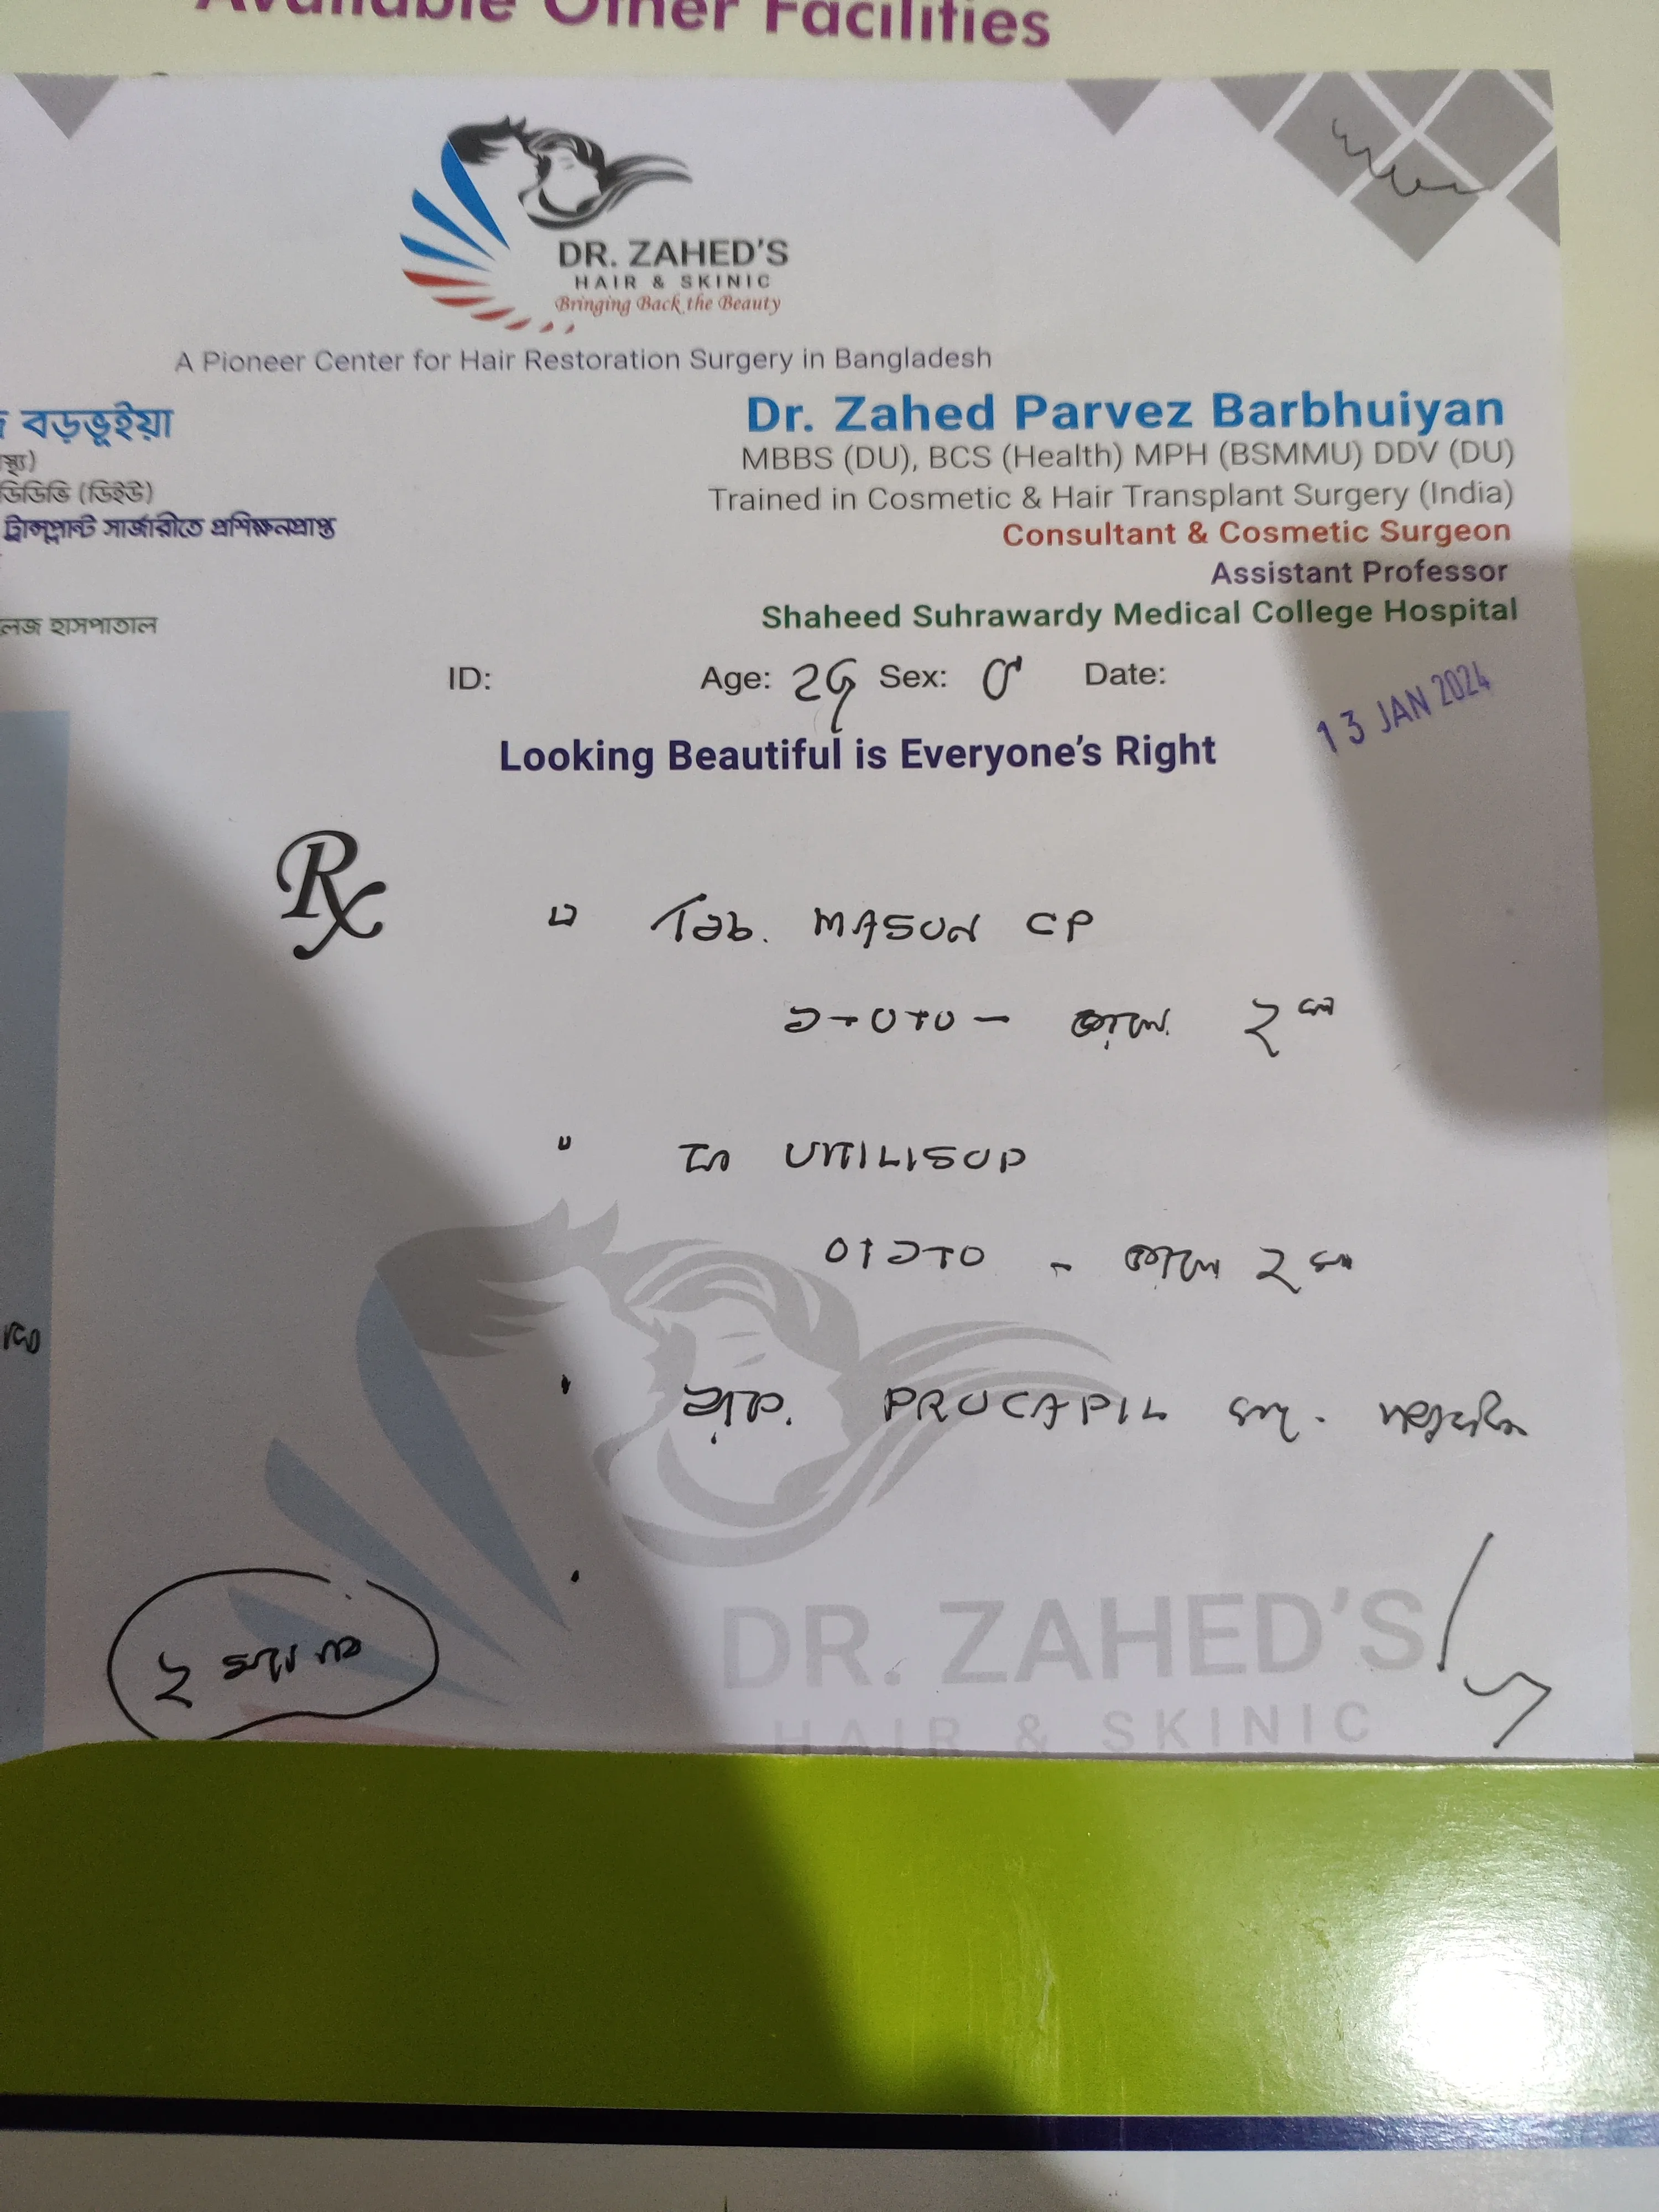 Available Other Facilities
DR. ZAHED'S
HAIR & SKINIC
Bringing Back the Beauty
A Pioneer Center for Hair Restoration Surgery in Bangladesh
বড়ভূইয়া
ডিডিভি (ডিইউ)
ট্রান্সপ্লান্ট সার্জারীতে প্রশিক্ষনপ্রাপ্ত
লেজ হাসপাতাল
Dr. Zahed Parvez Barbhuiyan
MBBS (DU), BCS (Health) MPH (BSMMU) DDV (DU)
Trained in Cosmetic & Hair Transplant Surgery (India)
Consultant & Cosmetic Surgeon
Assistant Professor
Shaheed Suhrawardy Medical College Hospital
ID: Age: 29 Sex: ♂ Date: 13 JAN 2024
Looking Beautiful is Everyone's Right
Rx
Tab. MASON CP
১+০+০ – ২
UTILISOP
০+১+০ - ২
PROCAPIL
২
DR. ZAHED'S
HAIR & SKINIC